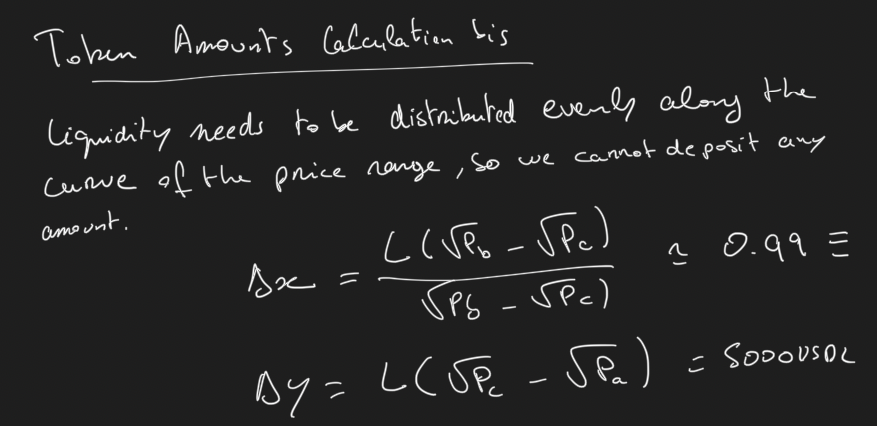 Token Amounts Calculation bis
Liquidity needs to be distributed evenly along the
curve of the price range, so we cannot deposit any
amount.
Δx = L(√Pb - √Pc) / √Pb - √Pc) ≃ 0.99 Ξ
Δy = L(√Pc - √Pa) = 5000USDC